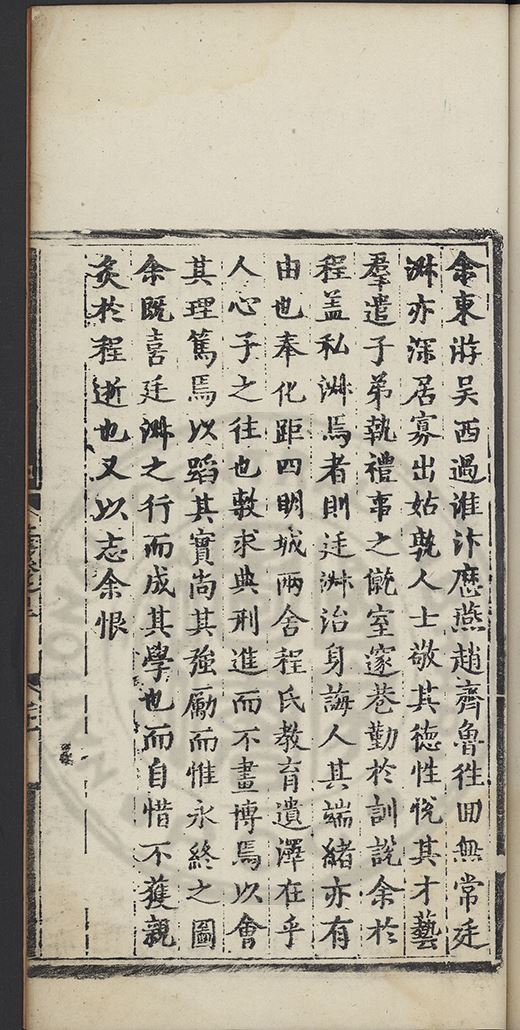 余東游吳西過淮汴歷燕趙齊魯徃回無常廷
淋亦深居寡出姑孰人士敬其德性恱其才藝
羣遣子弟執禮事之僦室窮巷勤於訓說余於
程盖私淋焉者則廷淋治身誨人其端緒亦有
由也奉化距四明城兩舍程氏教育遺澤在乎
人心子之往也敷求典刑進而不畫博焉以會
其理篤焉以蹈其實尚其強勵而惟永終之圖
余既喜廷淋之行而成其學也而自惜不獲親
炙於程逝也又以志余恨